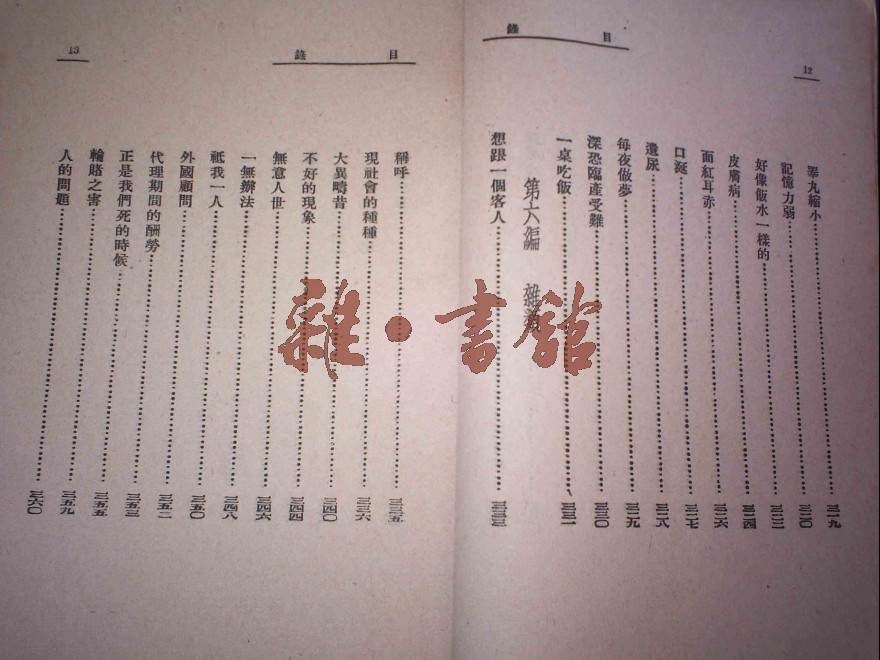 12
目錄
睪丸縮小……三一九
記憶力弱……三二〇
好像飯水一樣的……三二二
皮膚病……三二四
面紅耳赤……三二六
口涎……三二七
遺尿……三二八
每夜做夢……三二九
深恐臨產受難……三三〇
一桌吃飯……三三一
第六編 雜
想跟一個客人……三三三
目錄
13
稱呼……三三五
現社會的種種……三三六
大異疇昔……三四〇
不好的現象……三四四
無意人世……三四六
一無辦法……三四八
祇我一人……三五〇
外國顧問……三五二
代理期間的酬勞……三五三
正是我們死的時候……三五五
輪賭之害……三五九
人的問題……三六〇
雜·書館